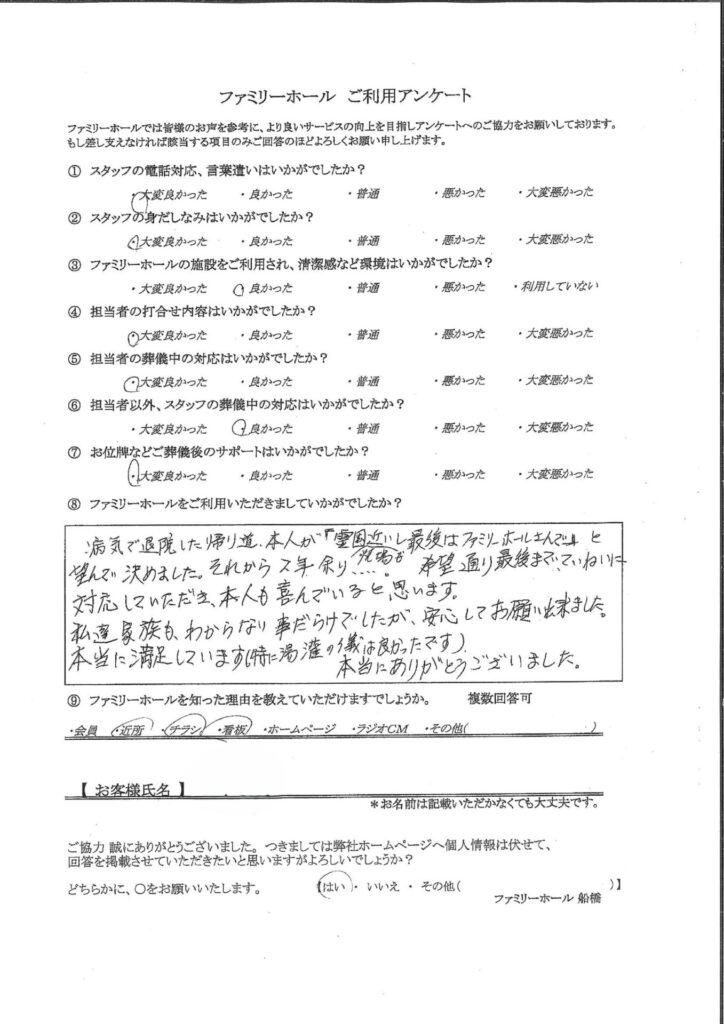 ファミリーホール ご利用アンケート
ファミリーホールでは皆様のお声を参考に、より良いサービスの向上を目指しアンケートへのご協力をお願いしております。
もし差し支えなければ該当する項目のみご回答のほどよろしくお願い申し上げます。
① スタッフの電話対応、言葉遣いはいかがでしたか？
・大変良かった ・良かった ・普通 ・悪かった ・大変悪かった
② スタッフの身だしなみはいかがでしたか？
・大変良かった ・良かった ・普通 ・悪かった ・大変悪かった
③ ファミリーホールの施設をご利用され、清潔感など環境はいかがでしたか？
・大変良かった ・良かった ・普通 ・悪かった ・利用していない
④ 担当者の打合せ内容はいかがでしたか？
・大変良かった ・良かった ・普通 ・悪かった ・大変悪かった
⑤ 担当者の葬儀中の対応はいかがでしたか？
・大変良かった ・良かった ・普通 ・悪かった ・大変悪かった
⑥ 担当者以外、スタッフの葬儀中の対応はいかがでしたか？
・大変良かった ・良かった ・普通 ・悪かった ・大変悪かった
⑦ お位牌などご葬儀後のサポートはいかがでしたか？
・大変良かった ・良かった ・普通 ・悪かった ・大変悪かった
⑧ ファミリーホールをご利用いただきましていかがでしたか？
病気で退院した帰り道、本人が『霊園近いし最後はファミリーホールさんで』と
望んで決めました。それから2年余り……。希望通り最後までていねいに
対応していただき、本人も喜んでいると思います。
私達家族も、わからない事だらけでしたが、安心してお願い出来ました。
本当に満足しています(特に湯灌の儀は良かったです)
本当にありがとうございました。
⑨ ファミリーホールを知った理由を教えていただけますでしょうか。 複数回答可
・会員 ・近所 ・チラシ ・看板 ・ホームページ ・ラジオCM ・その他( )
【 お客様氏名 】
＊お名前は記載いただかなくても大丈夫です。
ご協力 誠にありがとうございました。つきましては弊社ホームページへ個人情報は伏せて、
回答を掲載させていただきたいと思いますがよろしいでしょうか？
どちらかに、〇をお願いいたします。 【はい ・ いいえ ・ その他( )】
ファミリーホール 船橋